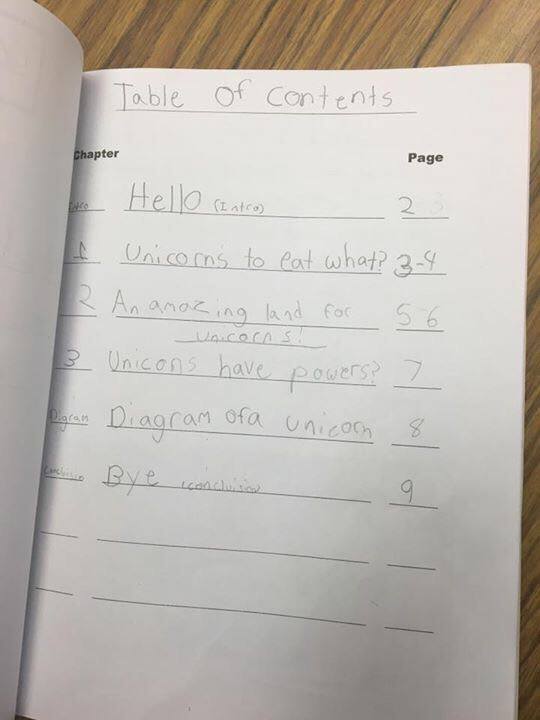 Table Of Contents
Chapter Page
Intro Hello (Intro) 2
1 Unicorns to eat what? 3-4
2 An amazing land for 5-6
unicorns!
3 Unicons have powers? 7
Digram Diagram of a unicorn 8
Bye 9